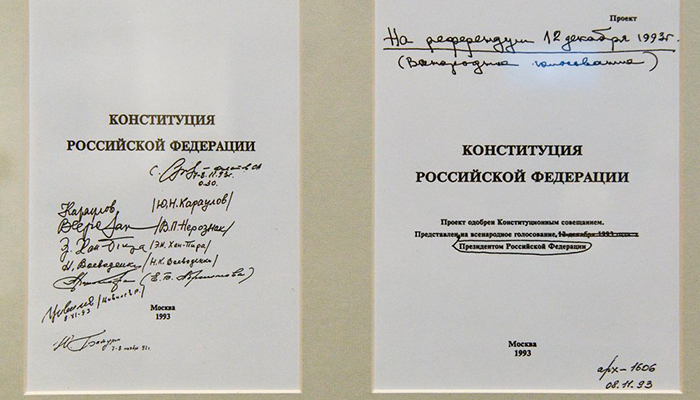 КОНСТИТУЦИЯ
РОССИЙСКОЙ ФЕДЕРАЦИИ
7-8.11.93г.
Караулов /Ю.Н.Караулов/
/В.П.Нерознак/
/Э.И. Хан-Пира/
Н. Воеводенко /Н.К.Воеводенко/
8-XI-93
Москва
1993
Проект
На референдум 12 декабря 1993г.
(Всенародное голосование)
КОНСТИТУЦИЯ
РОССИЙСКОЙ ФЕДЕРАЦИИ
Проект одобрен Конституционным совещанием.
Представлен на всенародное голосование, 12 декабря 1993 года
Президентом Российской Федерации
Москва
1993
арх-1606
08.11.93